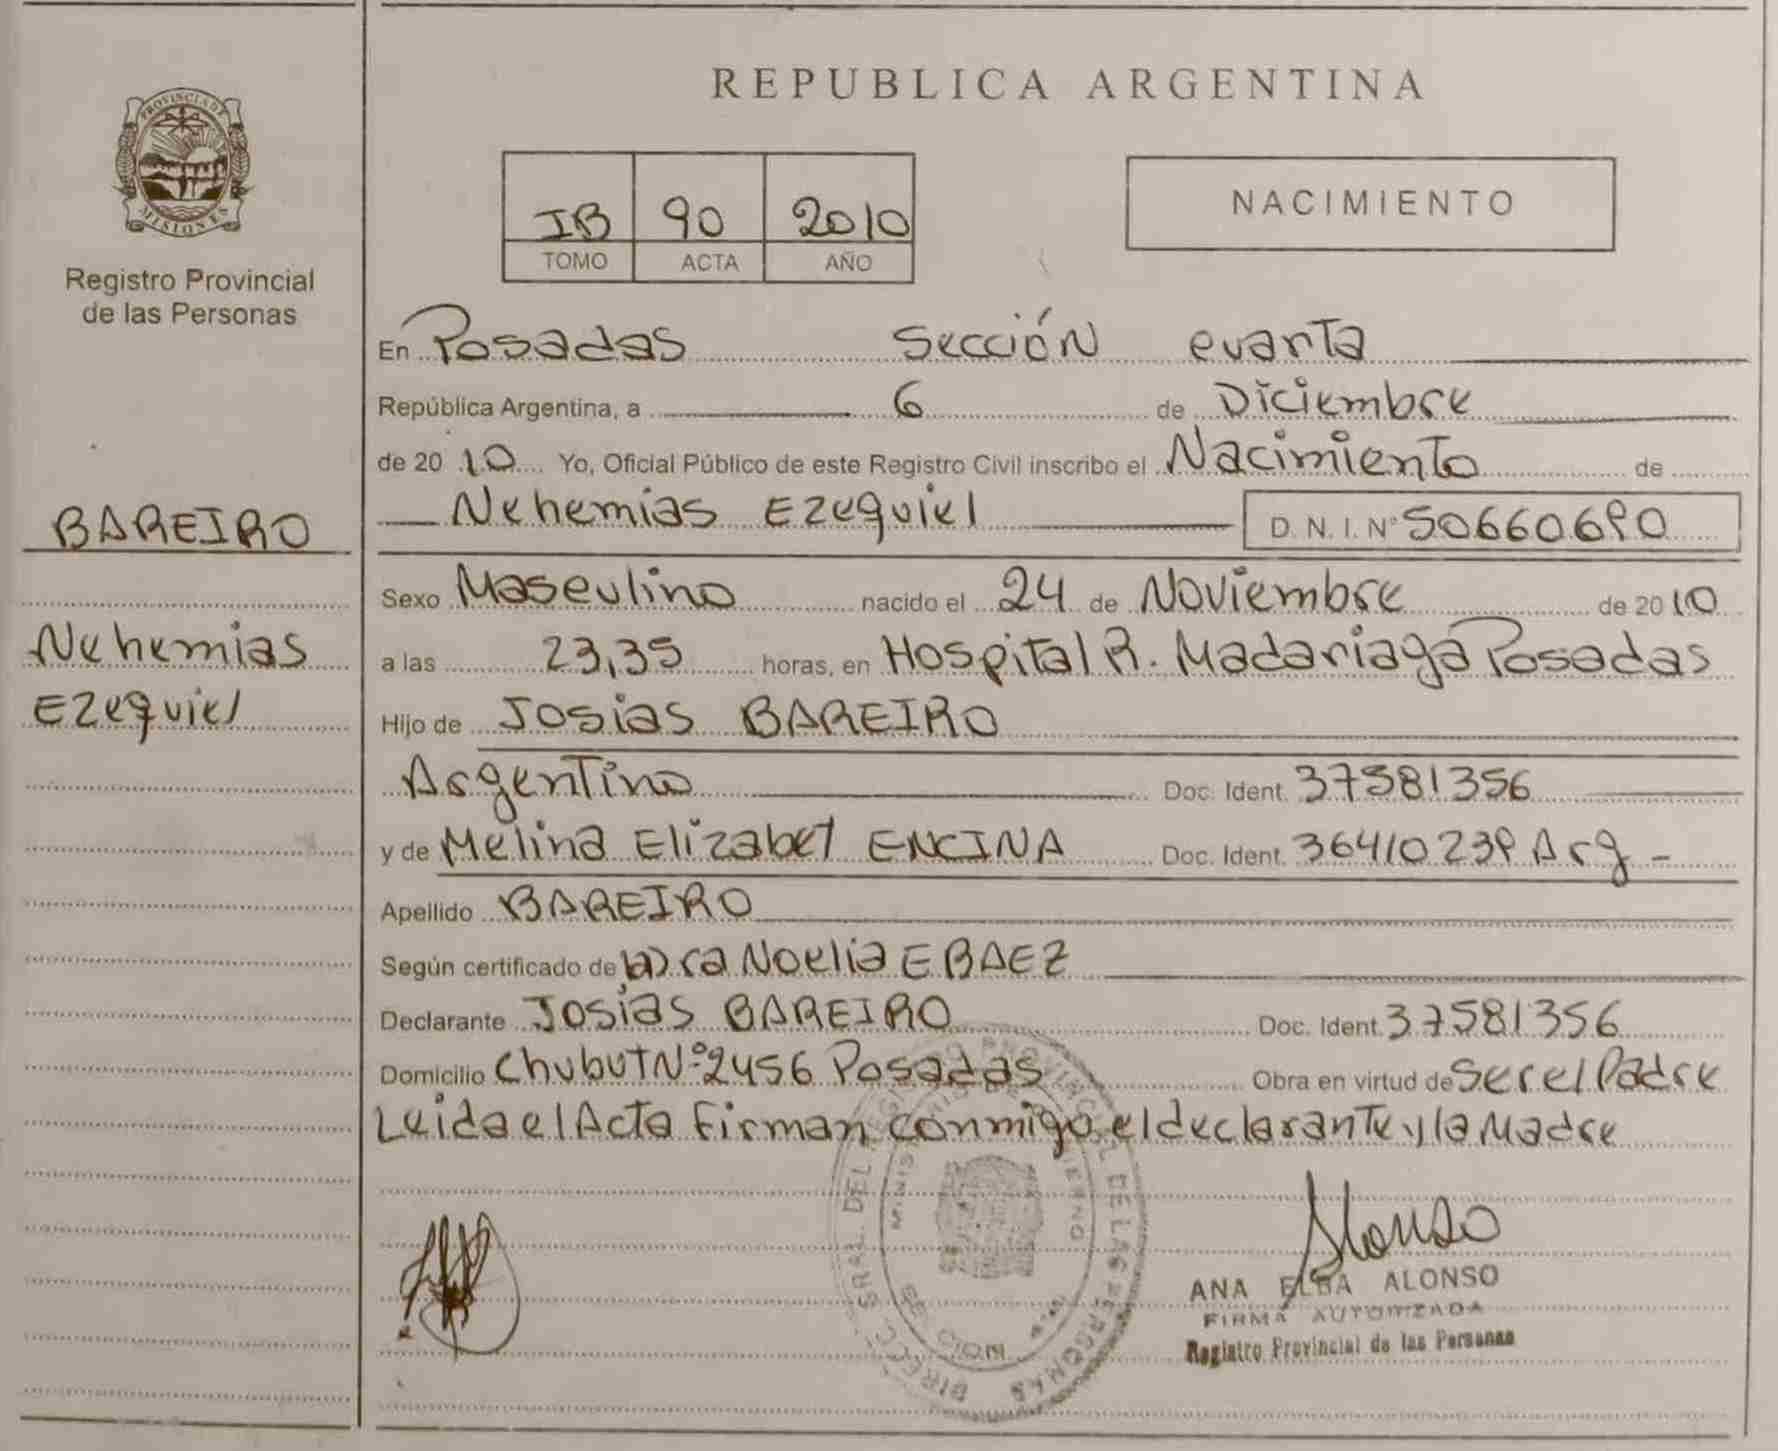 PROVINCIA DE
MISIONES
Registro Provincial
de las Personas
BAREIRO
Nehemias
Ezequiel
REPUBLICA ARGENTINA
IB 90 2010
TOMO ACTA AÑO
NACIMIENTO
En Posadas Sección cuarta
República Argentina, a 6 de Diciembre
de 2010 Yo, Oficial Público de este Registro Civil inscribo el Nacimiento de
Nehemias Ezequiel D.N.I. Nº 50660690
Sexo Masculino nacido el 24 de Noviembre de 2010
a las 23,35 horas, en Hospital R. Madariaga Posadas
Hijo de Josias BAREIRO
Argentino Doc. Ident. 37581356
y de Melina Elizabet ENCINA Doc. Ident. 36410239 Arg -
Apellido BAREIRO
Según certificado de la Dra Noelia E BAEZ
Declarante Josias BAREIRO Doc. Ident. 37581356
Domicilio Chubut Nº 2456 Posadas Obra en virtud de Ser el Padre
Leida el Acta Firman conmigo el declarante y la Madre
Alonso
ANA ELBA ALONSO
FIRMA AUTORIZADA
Registro Provincial de las Personas